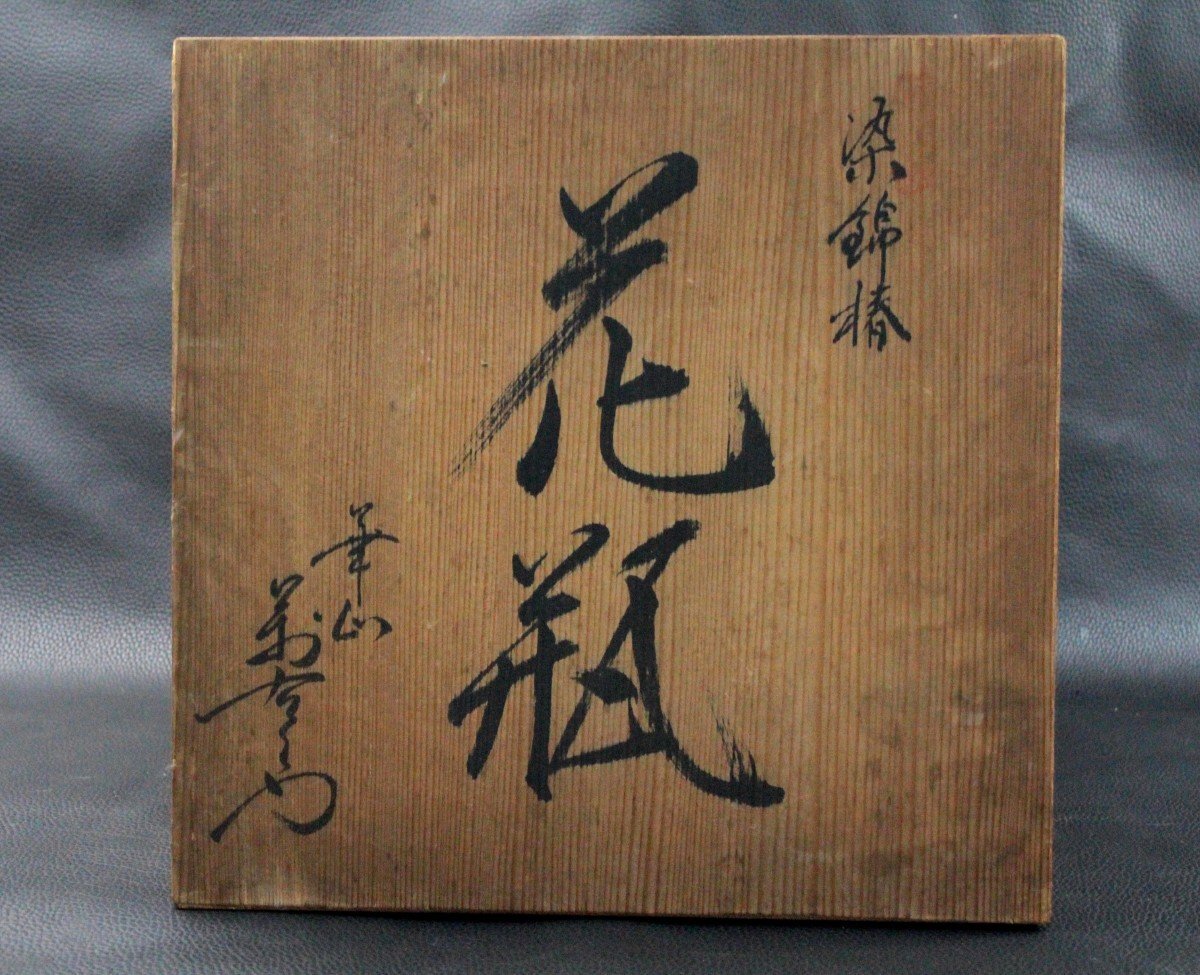 染錦椿
花瓶
華山